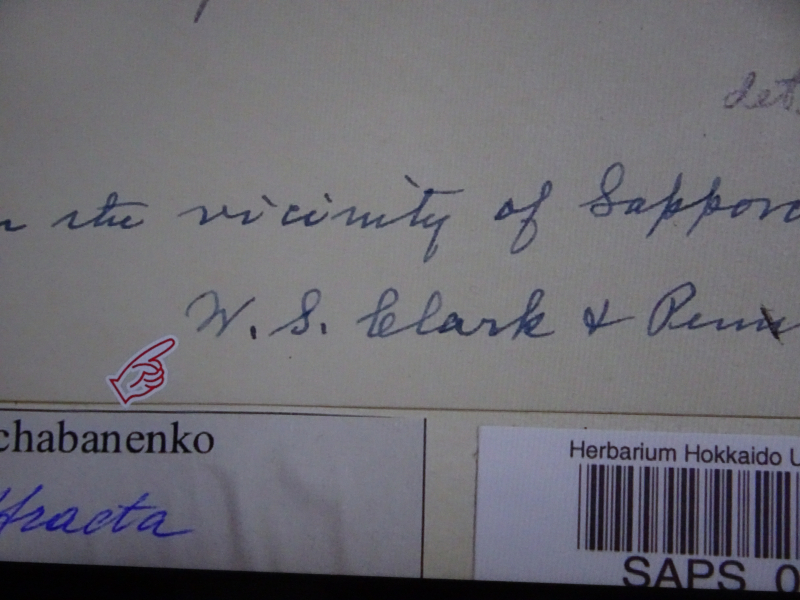 det.
the vicinity of Sapporo
W. S. Clark & Penn
chabanenko
fracta
Herbarium Hokkaido U
SAPS 0